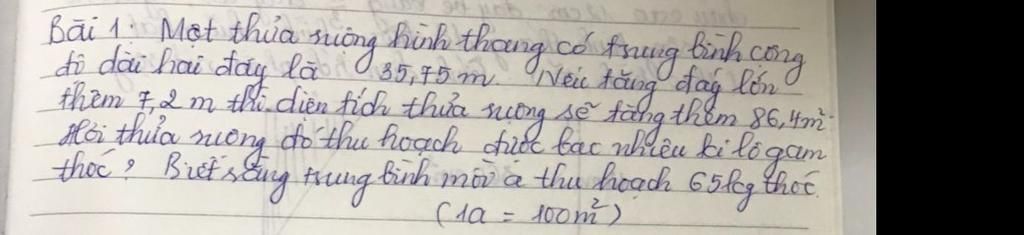 Bài 1: Một thửa ruộng hình thang có trung bình cộng
độ dài hai đáy là 35,75 m. Nếu tăng đáy lớn
thêm 7,2 m thì diện tích thửa ruộng sẽ tăng thêm 86,4m².
Hỏi thửa ruộng đó thu hoạch được bao nhiêu ki lô gam
thóc? Biết rằng trung bình mỗi a thu hoạch 65kg thóc.
(1a = 100m²)